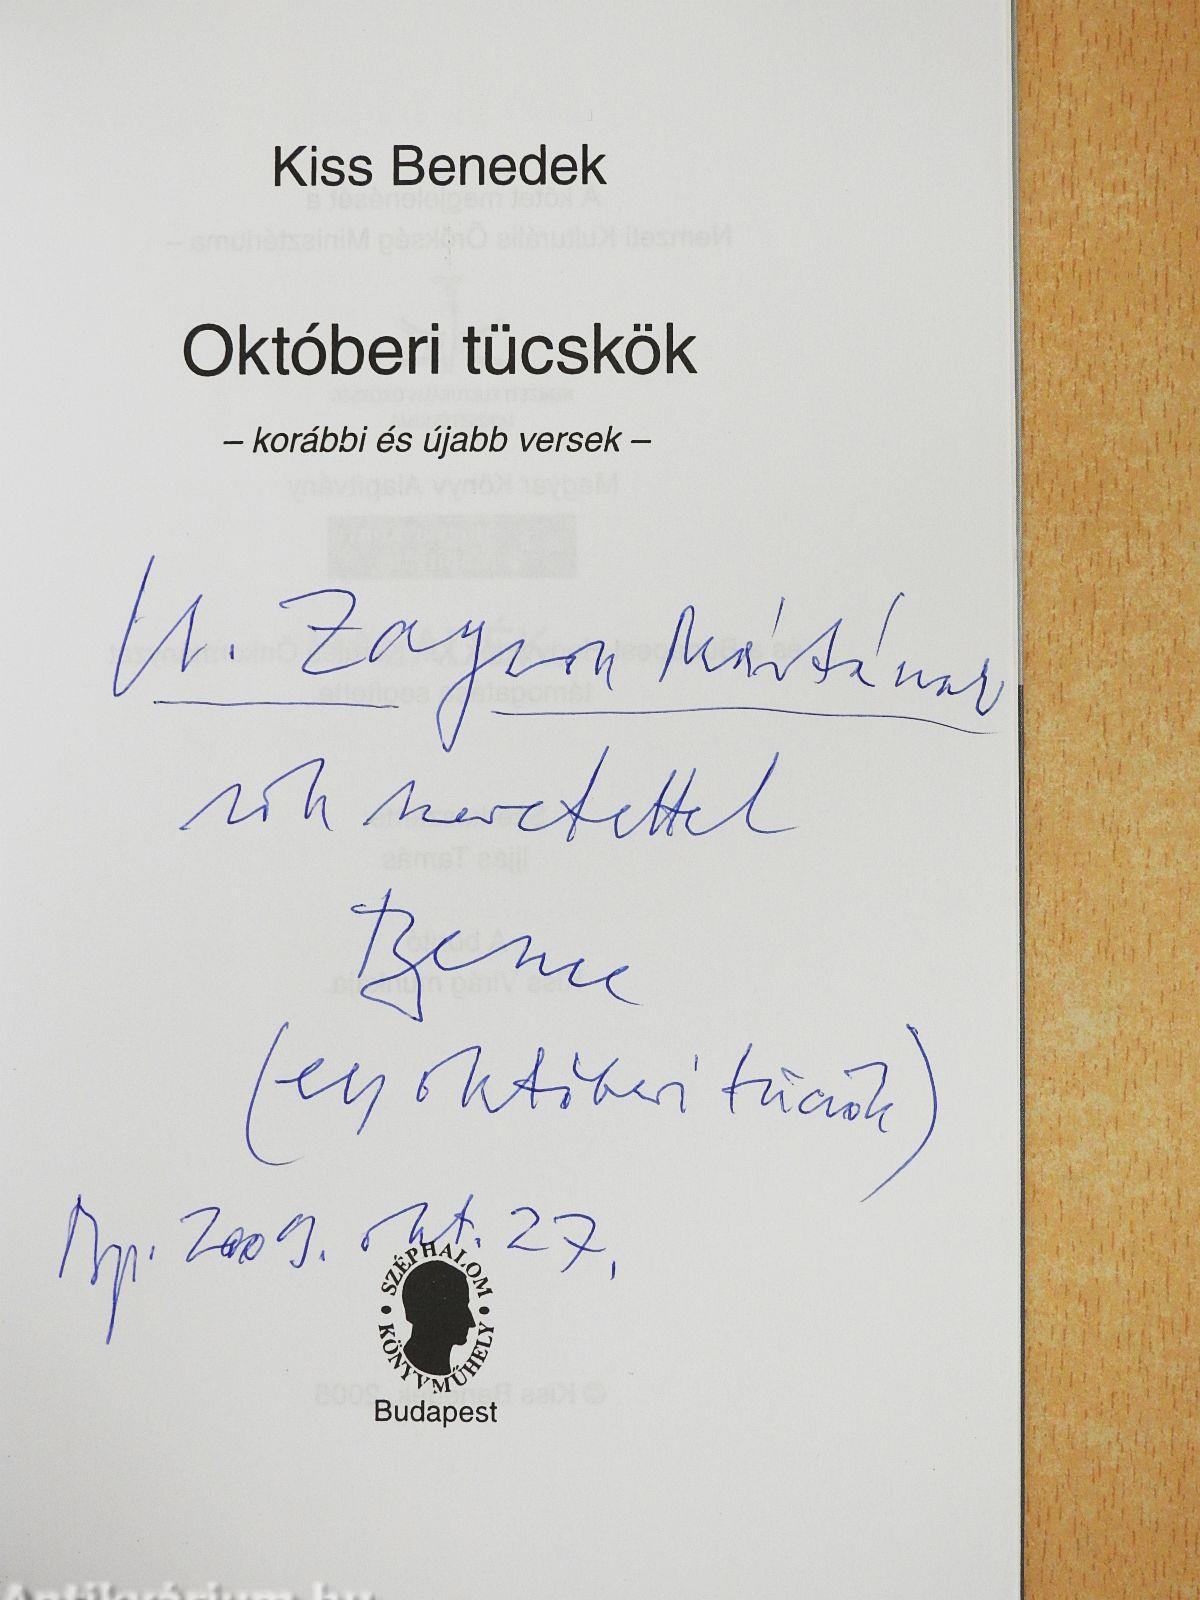 Kiss Benedek
Októberi tücskök
– korábbi és újabb versek –
Zagyván Mártának
sok szeretettel
Bence
(egy októberi tücsök)
Bp. 2009. okt. 27.
SZÉPHALOM
KÖNYVMŰHELY
Budapest
Antikvárium.hu